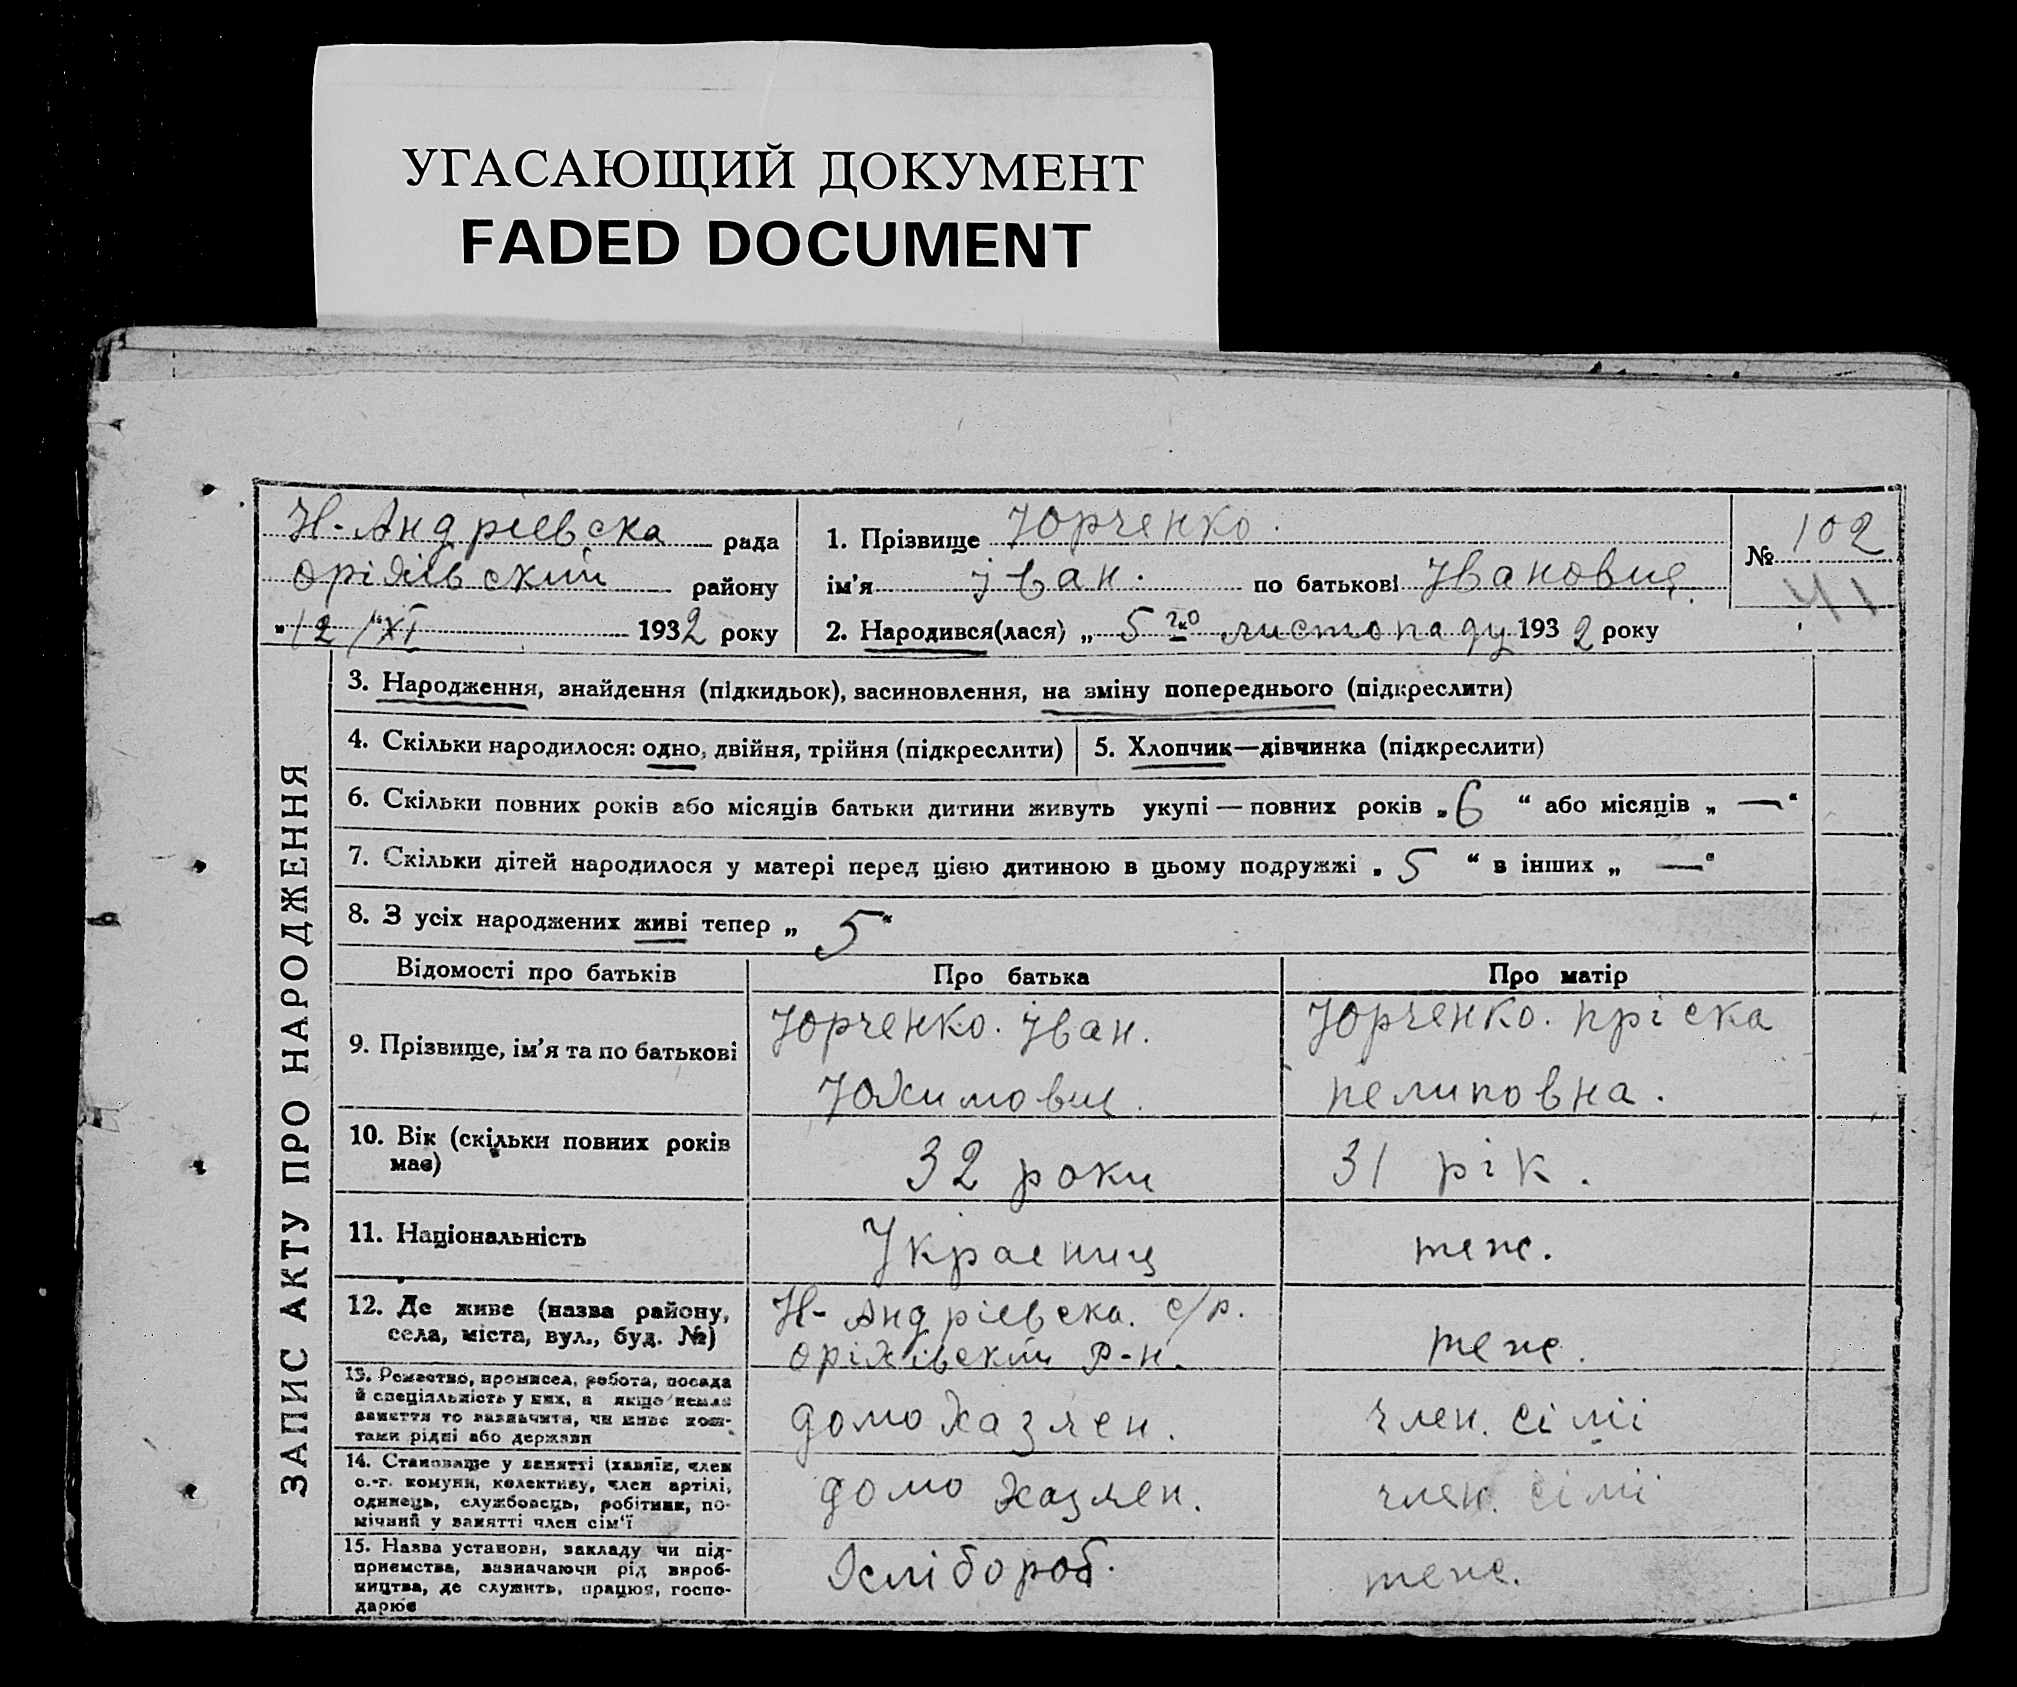 УГАСАЮЩИЙ ДОКУМЕНТ
FADED DOCUMENT
Н-Андріевска рада
оріхівский району
"12/"XI 1932 року
1. Прізвище Юрченко.
ім'я Іван. по батькові Івановиц
2. Народився(лася) „ 5го листопаду 1932 року
№ 102
41
ЗАПИС АКТУ ПРО НАРОДЖЕННЯ
3. Народження, знайдення (підкидьок), засиновлення, на зміну попереднього (підкреслити)
4. Скільки народилося: одно, двійня, трійня (підкреслити)
5. Хлопчик—дівчинка (підкреслити)
6. Скільки повних років або місяців батьки дитини живуть укупі — повних років „ 6 “ або місяців „ — “
7. Скільки дітей народилося у матері перед цією дитиною в цьому подружжі „ 5 “ в інших „ — “
8. З усіх народжених живі тепер „ 5 “
Відомості про батьків
Про батька
Про матір
9. Прізвище, ім'я та по батькові
Юрченко. Іван.
Юхимовиц.
Юрченко. пріска
пелиповна.
10. Вік (скільки повних років
має)
32 роки
31 рік.
11. Національність
Украениц
теж.
12. Де живе (назва району,
села, міста, вул., буд. №)
Н-Андріевска. с/р.
оріхівский р-н.
теж.
13. Ремество, промисел, робота, посада
й спеціяльність у них, а якщо немає
заняття то зазначити, чи живе кош-
тами рідні або держави
домохазяен.
член. сімі
14. Становище у занятті (хазяїн, член
с.-г. комуни, колективу, член артілі,
одинець, службовець, робітник, по-
мічний у занятті член сім'ї
домо хазяен.
член. сімі
15. Назва установи, закладу чи під-
приємства, зазначаючи рід вироб-
ництва, де служить, працює, госпо-
дарює
Хслібороб.
теж.